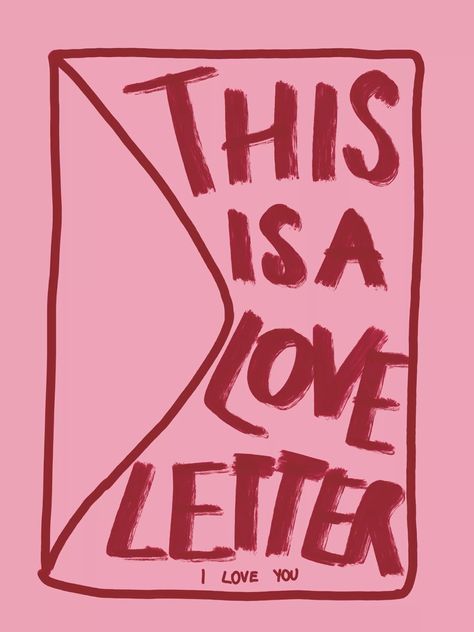 THIS
IS A
LOVE
LETTER
I LOVE YOU